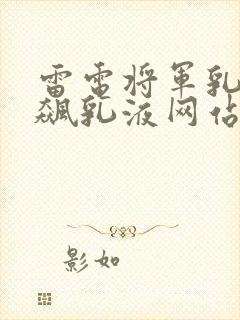 雷电将军乳
飙乳液网站
影如